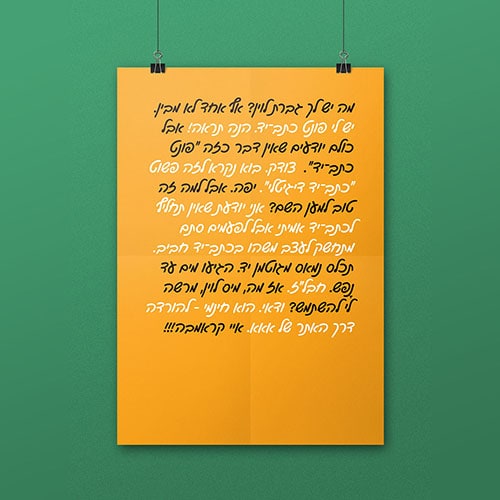 מה יש לך גברת לוין? אף אחד לא מבין.
יש לי פונט כתב-יד. הנה תראה! אבל
כולם יודעים שאין דבר כזה "פונט
כתב-יד". צודק. בוא נקרא לזה פשוט
"כתב-יד דיגיטלי". יפה. אבל למה זה
טוב למען השם? אני יודעת שאין תחליף
לכתב-יד אמיתי אבל לפעמים סתם
מתחשק לעצב משהו בכתב-יד חביב.
תכלס נמאס מגוטמן יד. הגיעו מים עד
נפש. חבל"ז. אז מה, מיס לוין, מרשה
לי להשתמש? ודאי. הוא חינמי - להורדה
דרך האתר של אאא. איי קראמבה!!!